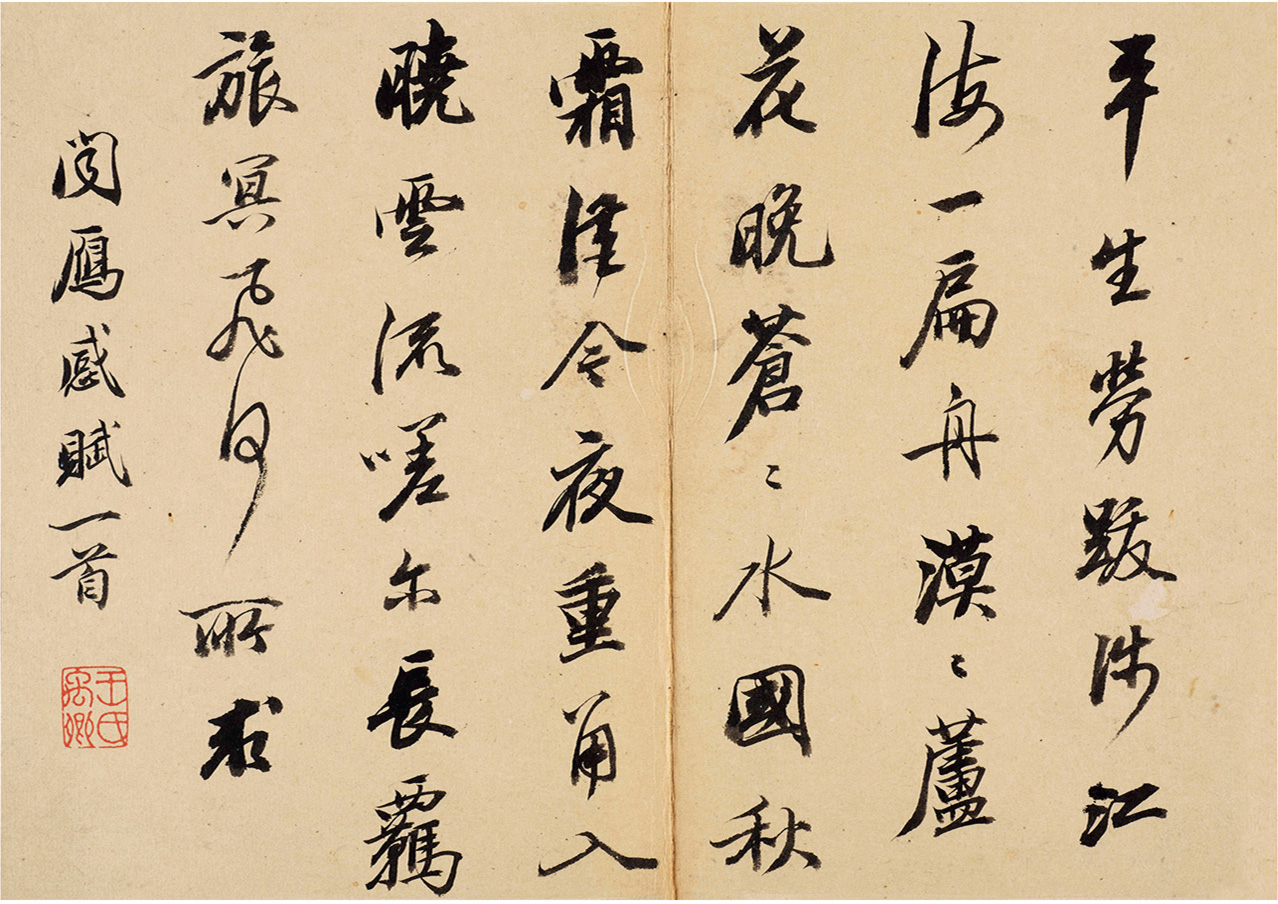 平生勞跋涉江
海一扁舟漠〻蘆
花晚蒼〻水國秋
霜從今夜重角入
曉雲流嗟尔長羈
旅冥飛何所求
聞鴈感賦一首
王氏禹卿